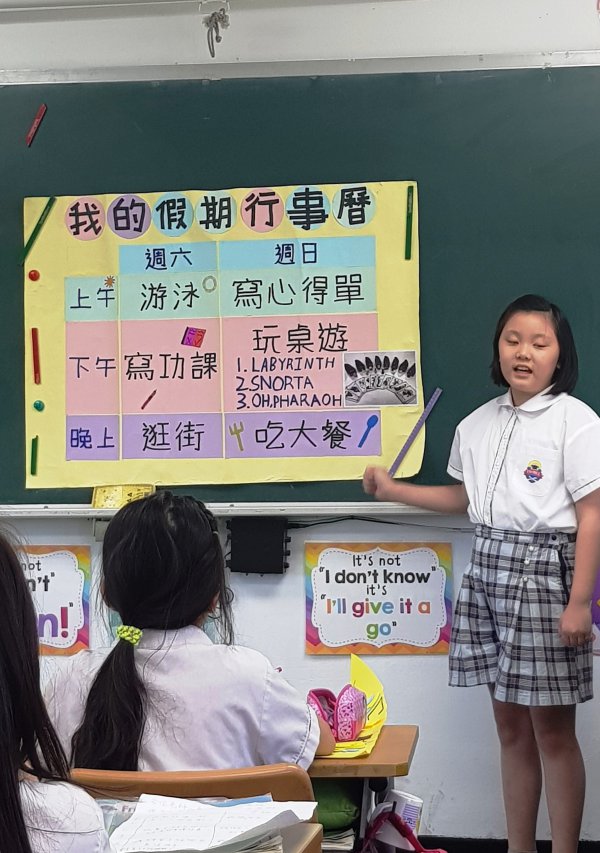 我的假期行事曆
週六 週日
上午 游泳 寫心得單
下午 寫功課 玩桌遊
1. LABYRINTH
2. SNORTA
3. OH, PHARAOH
晚上 逛街 吃大餐
It's not
"I don't know"
it's
"I'll give it a
go"
not
n't"
n!"